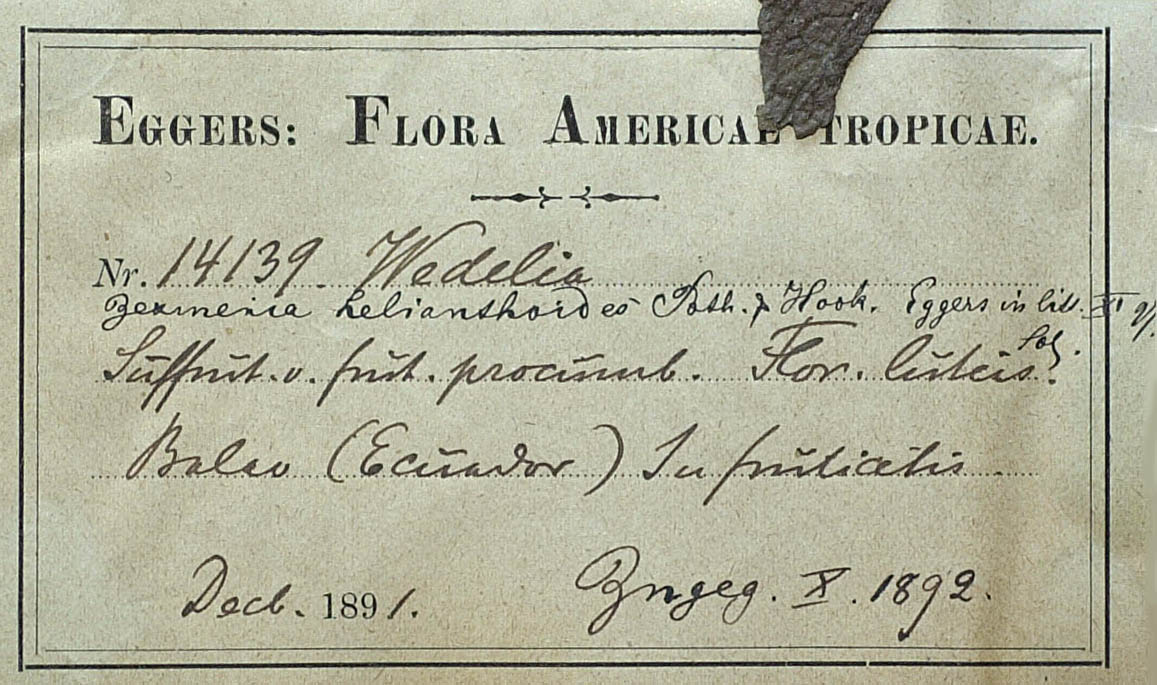 EGGERS: FLORA AMERICAE TROPICAE.
Nr. 14139. Wedelia
Zexmenia helianthoides & Hook. Eggers in litt. XI
Suffrut. v. frut. procumb. Flor. luteis.
Balao (Ecuador) In fruticetis
Decb. 1891. X. 1892.